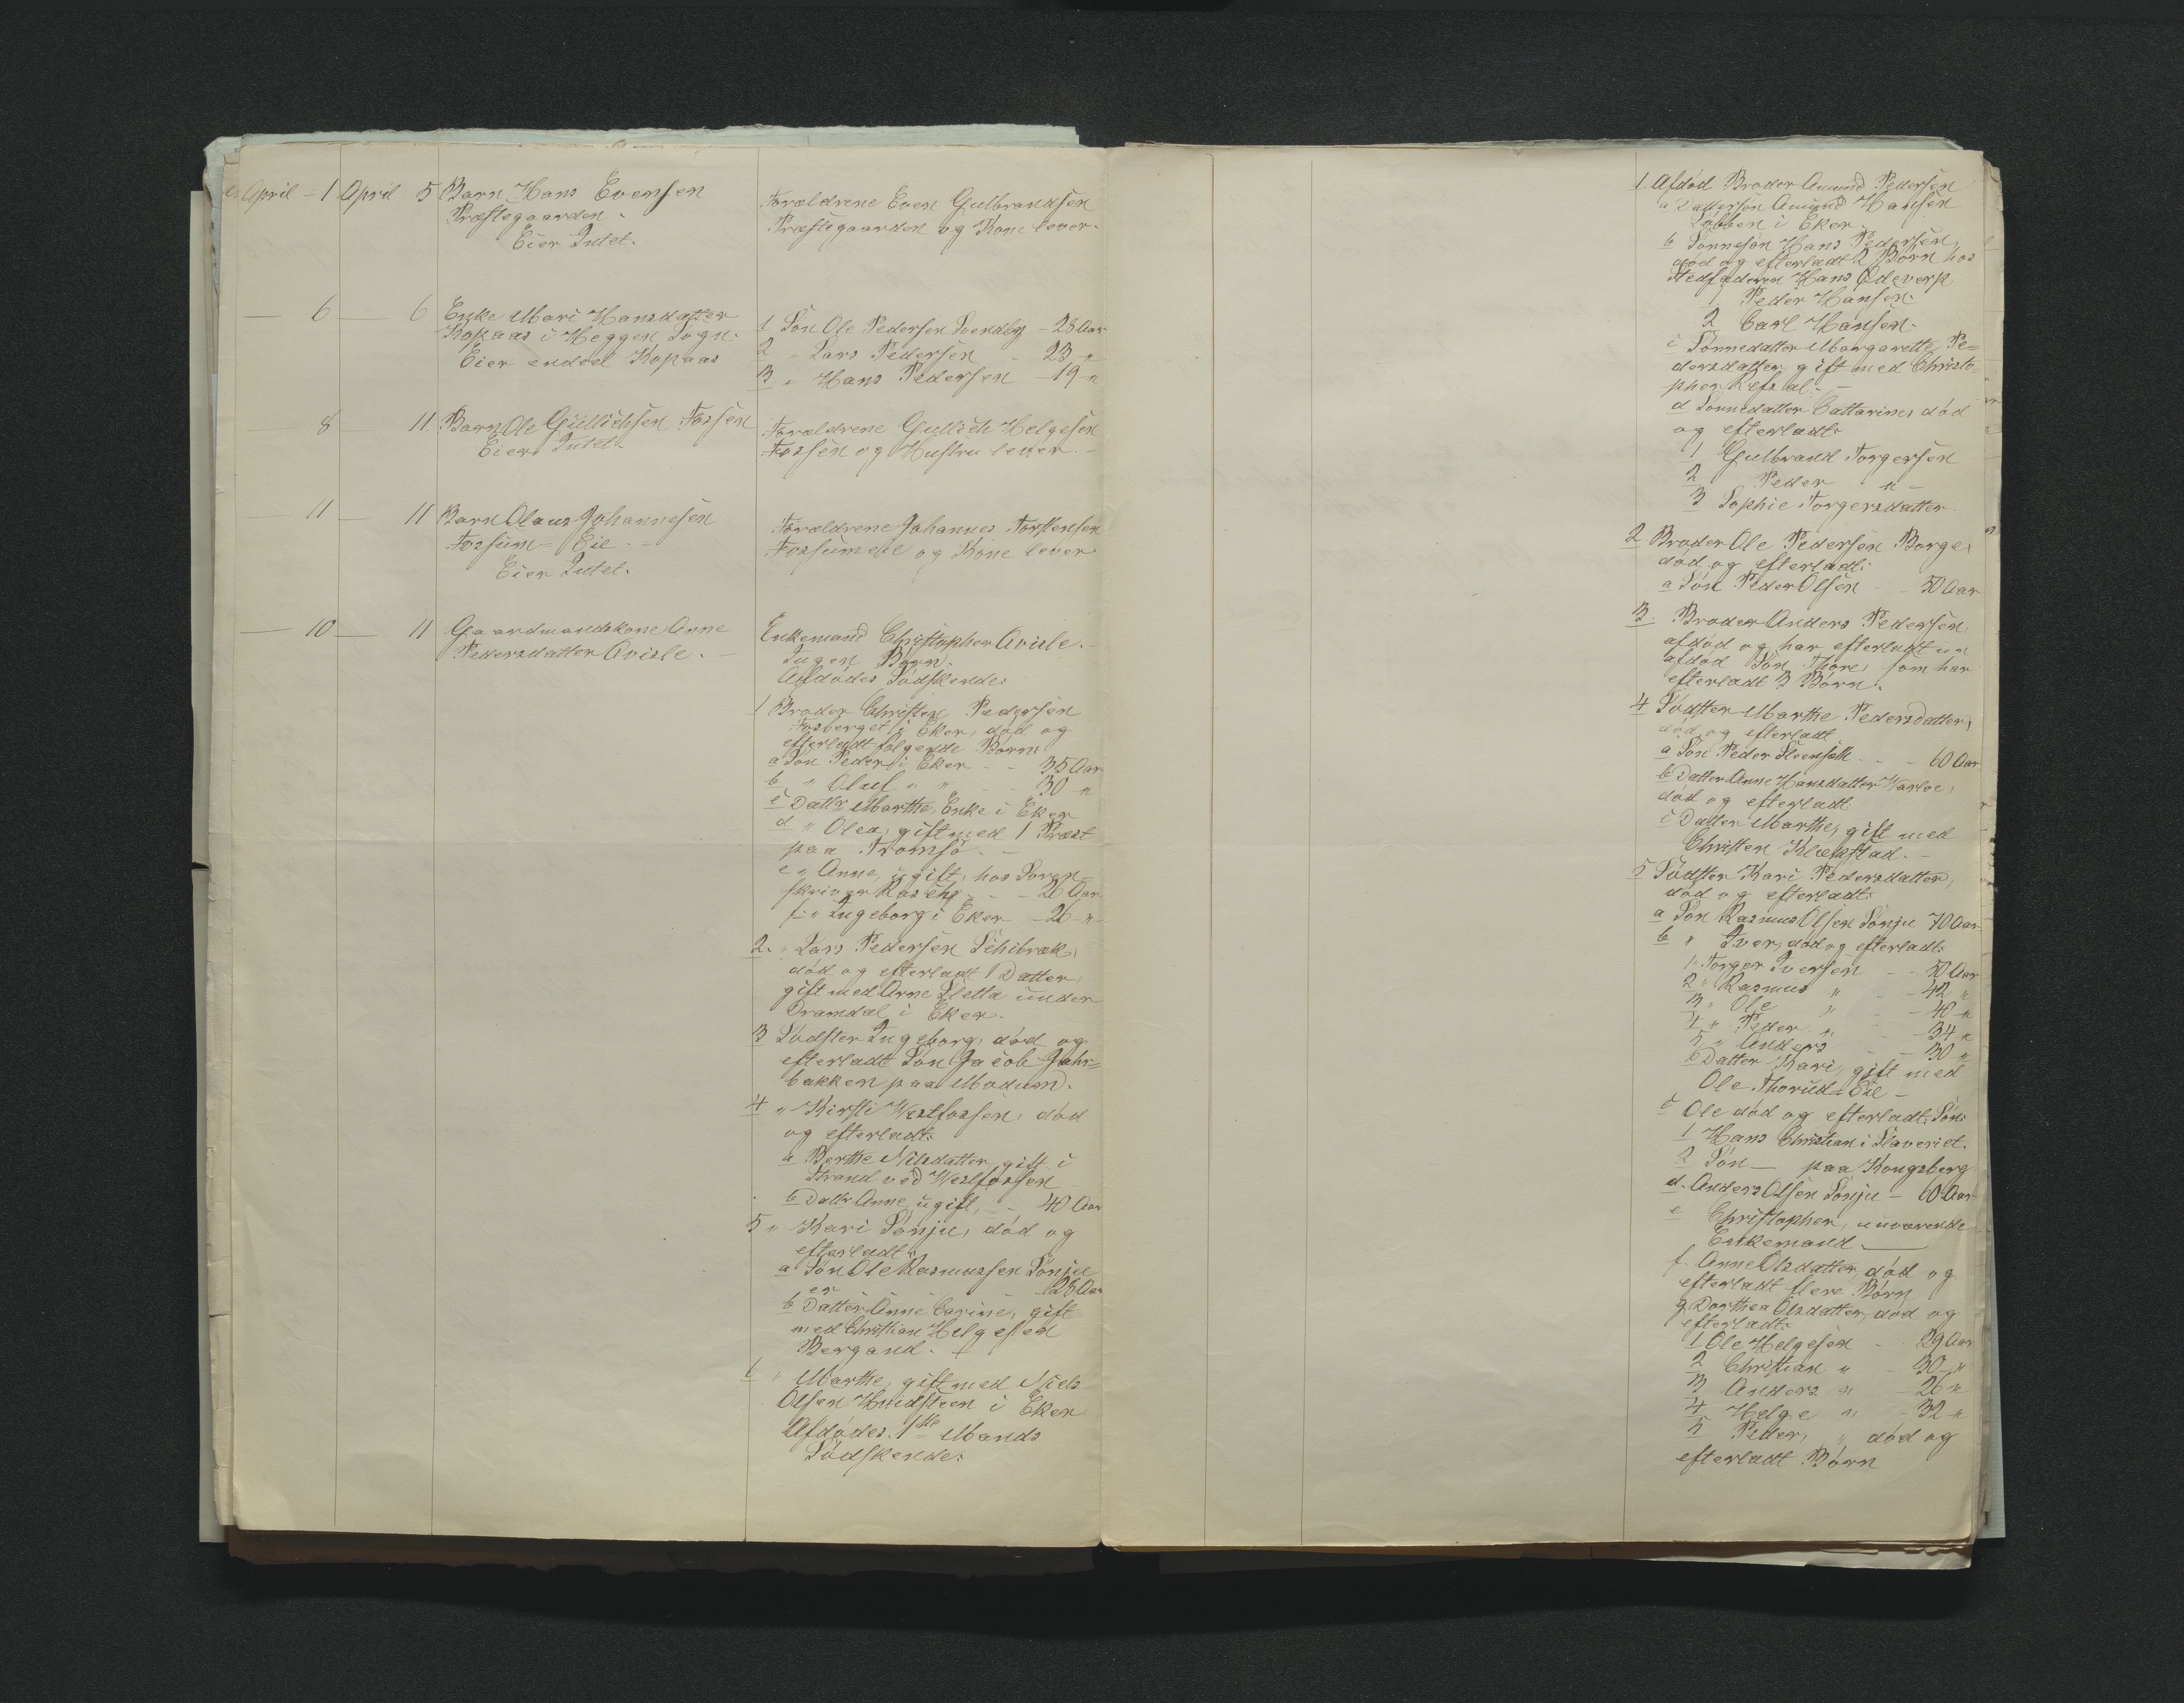 April - 1 April 5 Barn Hans Evensen
Præstegaarden.
Eier Intet.
Forældrene Even Gulbrandsen
Præstegaarden og Kone lever.
6 6 Enke Mari Hansdatter
Kopaas i Heggen Sogn.
Eier endeel Kopaas
1 Søn Ole Pedersen Svendby - 28 Aar
2 " Lars Pedersen - 23 "
3 " Hans Pedersen - 19 "
8 11 Barn Ole Gullichsen Fossen
Eier Intet.
Forældrene Gullich Helgesen
Fossen og Hustru lever. -
11 11 Barn Olaus Johannesen
Fossum-Eie
Eier Intet.
Forældrene Johannes Torstensen
Fossumeie og Kone lever
10 11 Gaardmandskone Anne
Pedersdatter Aviste. -
Enkemand Christopher Aviste. -
Ingen Børn.
Afdødes Södskende:
1 Broder Christen Pedersen
Fosberget i Eker, død og
efterladt følgende Børn:
a Søn Peder i Eker - - 35 Aar
b " Oluf " " 30 "
c Dattr Marthe, Enke i Eker
d " Olea, gift med 1 Præst
paa Tromsø. -
e " Anne, ugift, hos Soren-
skriver Rasch - - 26 Aar
f " Ingeborg i Eker - 26 - " -
2. " Lars Pedersen
død og efterladt 1 Datter,
gift med Arne Sletta under
Dramdal i Eker.
3 Södster Ingeborg, død og
efterladt Søn Jacob Jahr-
bakken paa Modum.
4 " Kirsti Westfossen, død
og efterladt:
a Berthe Nilsdatter, gift i
Strand ved Westfossen
b Dattr Anne, ugift, - - 40 Aar
5 " Kari Sönju, død og
efterladt:
a Søn Ole Rasmussen Sönju
er 28 Aar
b Datter Anne Carine, gift
med Christian Helgesen
Bergand.
6 " Marthe, gift med Niels
Olsen Hvidsteen i Eker
Afdødes 1ste Mands
Södskende:
1. Afdød Broder Amund Pedersen
a Dattersøn Amund Hansen
Løbben i Eker.
b Sønnesøn Hans Pedersen,
død og efterladt 2 Børn hos
Stedfaderen Hans Ødeverk
1 Peder Hansen.
2 Carl Hansen.
c Sønnedatter Margarethe Pe-
dersdatter, gift med Christo-
pher
d Sønnedatter Cattarine, død
og efterladt:
1 Gulbrand Torgersen
2 Peder " -
3 Sophie Torgersdatter.
2 Broder Ole Pedersen Borge,
død og efterladt:
a Søn Peder Olsen - - 50 Aar
3. Broder Anders Pedersen
afdød og har efterladt en
afdød Søn Thore, som har
efterladt 3 Børn.
4 Södster Marthe Pedersdatter,
død og efterladt
a Søn Peder Steenseth - - 60 Aar
b Datter Anne Hansdatter Warloe,
død og efterladt:
c Datter Marthe, gift med
Christen Klækstad. -
5 Södster Kari Pedersdatter,
død og efterladt:
a Søn Rasmus Olsen Sönju 70 Aar
b " Iver, død og efterladt:
1. Torger Iversen - - 50 Aar
2 " Rasmus " - - 42 "
3 " Ole " - - 40 "
4 " Peder " - - 34 "
5 " Anders - - 30 "
6 Datter Kari, gift med
Ole Thorud-Eie -
c Ole død og efterladt: Søn:
1 Hans Christian i Slaveriet.
2 Søn - paa Kongsberg
d. Anders Olsen Sönju - 60 Aar
e Christopher, nuværende
Enkemand
f. Anne Olsdatter, død og
efterladt flere Børn
g. Dorthea Olsdatter, død og
efterladt:
1 Ole Helgesen - 29 Aar
2 Christian " - 30 "
3 Anders " - 26 "
4 Helge " - 32 "
5 Peder, " død og
efterladt Børn